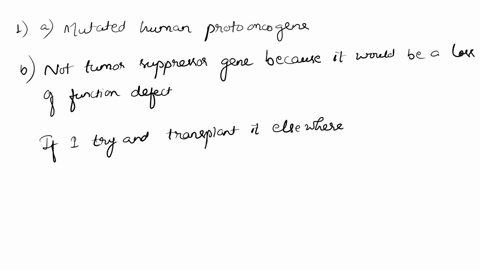 1) a) Mutated human proto oncogene
b) Not tumor suppressor gene because it would be a loss
of function defect
If I try and transplant it elsewhere